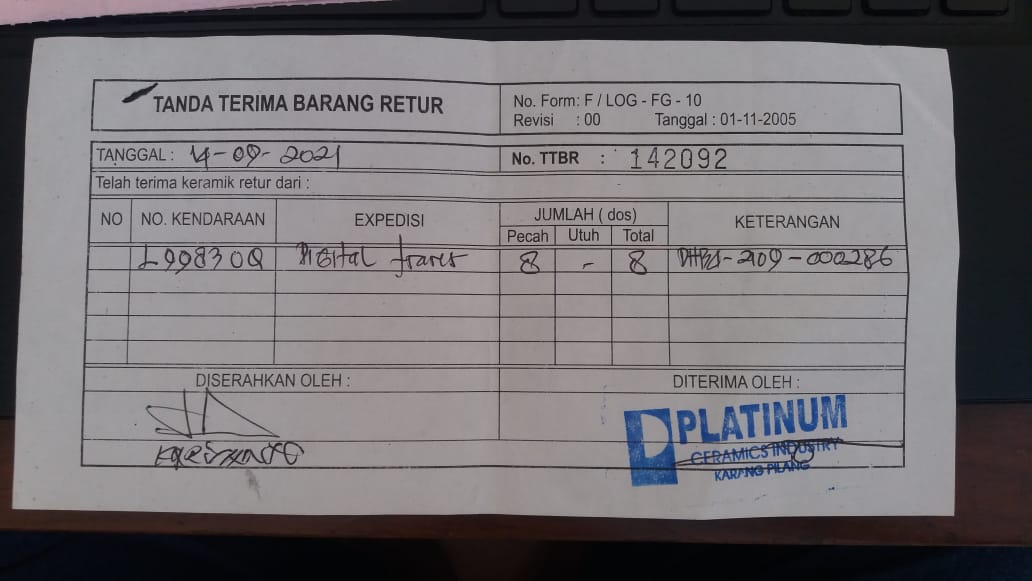 TANDA TERIMA BARANG RETUR
No. Form: F / LOG - FG - 10
Revisi : 00 Tanggal : 01-11-2005
TANGGAL : 14-09-2021
No. TTBR : 142092
Telah terima keramik retur dari :
NO NO. KENDARAAN EXPEDISI JUMLAH ( dos) KETERANGAN
Pecah Utuh Total
L 9983 OQ Digital 8 - 8
DISERAHKAN OLEH : DITERIMA OLEH :
PLATINUM
CERAMICS INDUSTRY
KARANG PILANG